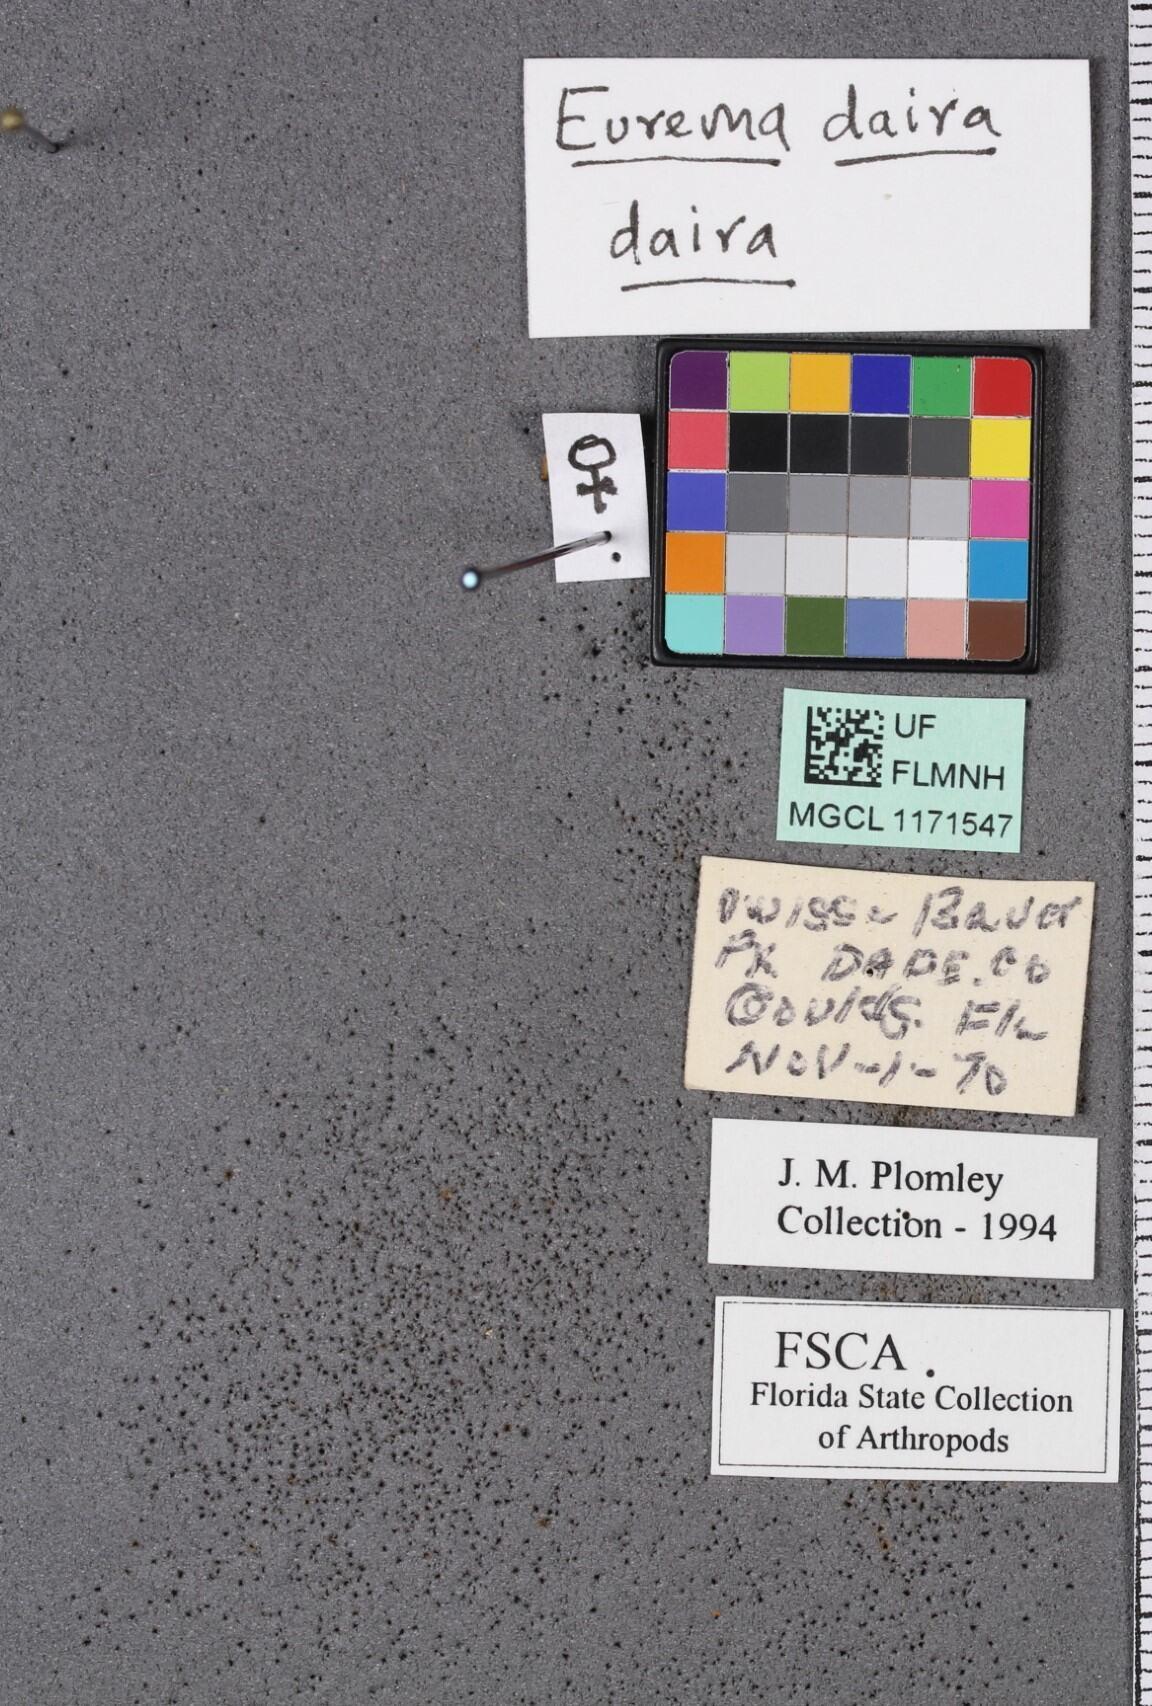 Eurema daira
daira
♀
UF
FLMNH
MGCL 1171547
PK DADE. CO
Goulds. Fla
NOV-1-70
J. M. Plomley
Collection - 1994
FSCA
Florida State Collection
of Arthropods